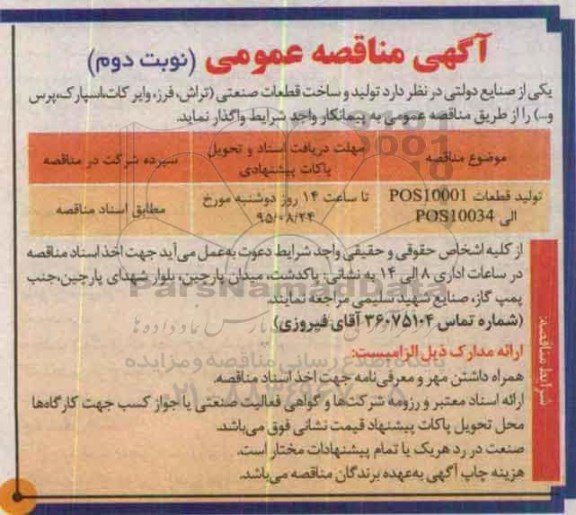 آگهی مناقصه عمومی (نوبت دوم)
یکی از صنایع دولتی در نظر دارد تولید و ساخت قطعات صنعتی (تراش، فرز، وایر کات، اسپارک، پرس
و...) را از طریق مناقصه عمومی به پیمانکار واجد شرایط واگذار نماید.
موضوع مناقصه
مهلت دریافت اسناد و تحویل
پاکات پیشنهادی
سپرده شرکت در مناقصه
تولید قطعات POS10001
الی POS10034
تا ساعت ۱۴ روز دوشنبه مورخ
۹۵/۰۸/۲۴
مطابق اسناد مناقصه
شرایط مناقصه:
از کلیه اشخاص حقوقی و حقیقی واجد شرایط دعوت به‌عمل می‌آید جهت اخذ اسناد مناقصه
در ساعات اداری ۸ الی ۱۴ به نشانی: پاکدشت، میدان پارچین، بلوار شهدای پارچین، جنب
پمپ گاز، صنایع شهید سلیمی مراجعه نمایند.
(شماره تماس ۳۶۰۷۵۱۰۴ آقای فیروزی)
ارائه مدارک ذیل الزامیست:
همراه داشتن مهر و معرفی‌نامه جهت اخذ اسناد مناقصه.
ارائه اسناد معتبر و رزومه شرکت‌ها و گواهی فعالیت صنعتی یا جواز کسب جهت کارگاه‌ها
محل تحویل پاکات پیشنهاد قیمت نشانی فوق می‌باشد.
صنعت در رد هریک یا تمام پیشنهادات مختار است.
هزینه چاپ آگهی به‌عهده برندگان مناقصه می‌باشد.
ParsNamadData
پایگاه اطلاع رسانی مناقصه و مزایده